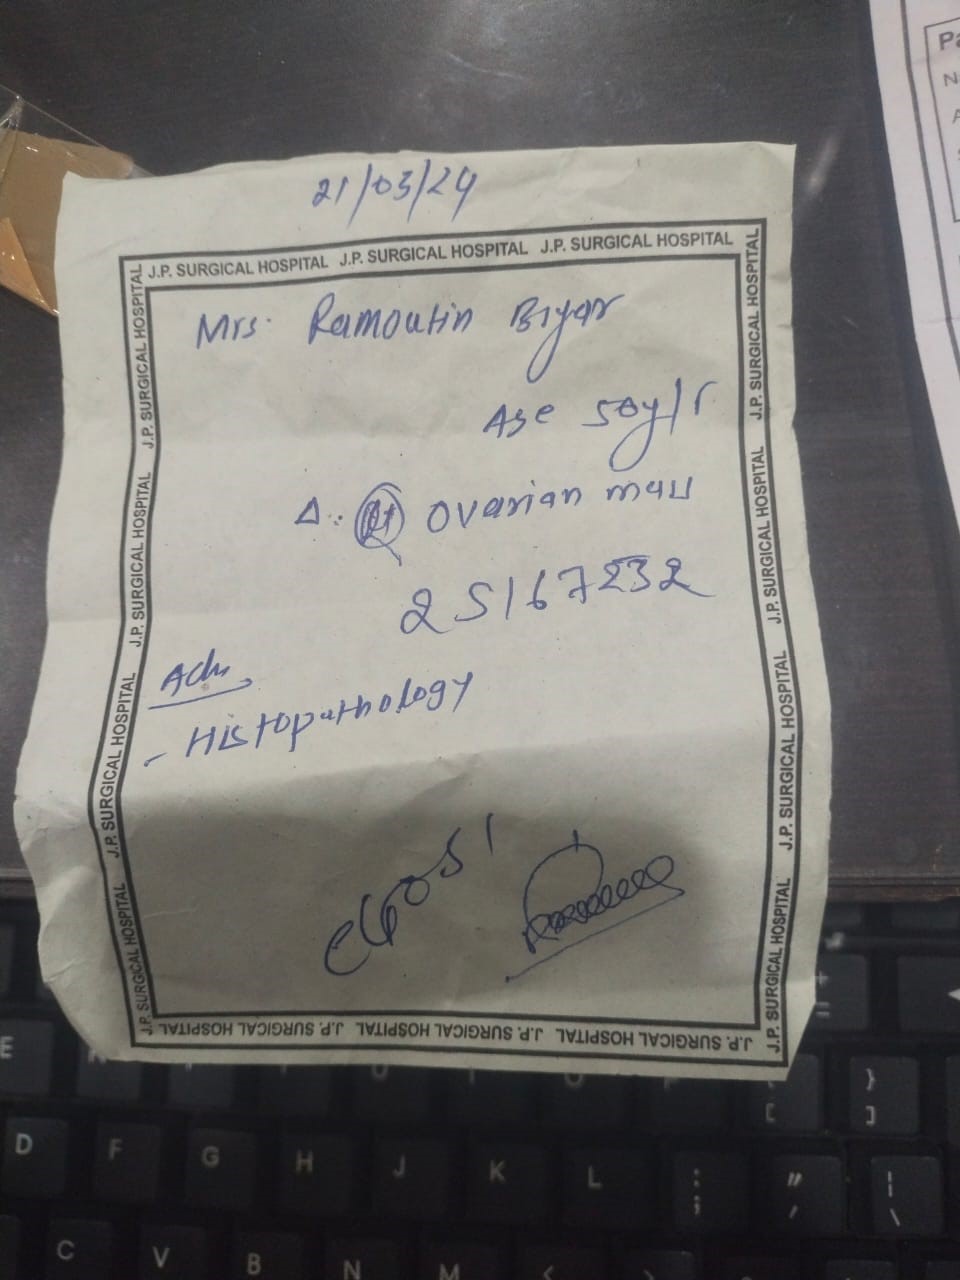 21/03/24
J.P. SURGICAL HOSPITAL J.P. SURGICAL HOSPITAL J.P. SURGICAL HOSPITAL
Mrs. Ramoutin
Age 50y/
Δ. ovarian mass
25167232
Adv
- Histopathology
J.P. SURGICAL HOSPITAL J.P. SURGICAL HOSPITAL J.P. SURGICAL HOSPITAL
J.P. SURGICAL HOSPITAL J.P. SURGICAL HOSPITAL J.P. SURGICAL HOSPITAL J.P. SURGICAL HOSPITAL
J.P. SURGICAL HOSPITAL J.P. SURGICAL HOSPITAL J.P. SURGICAL HOSPITAL J.P. SURGICAL HOSPITAL
D F G H J K L
C V B N M